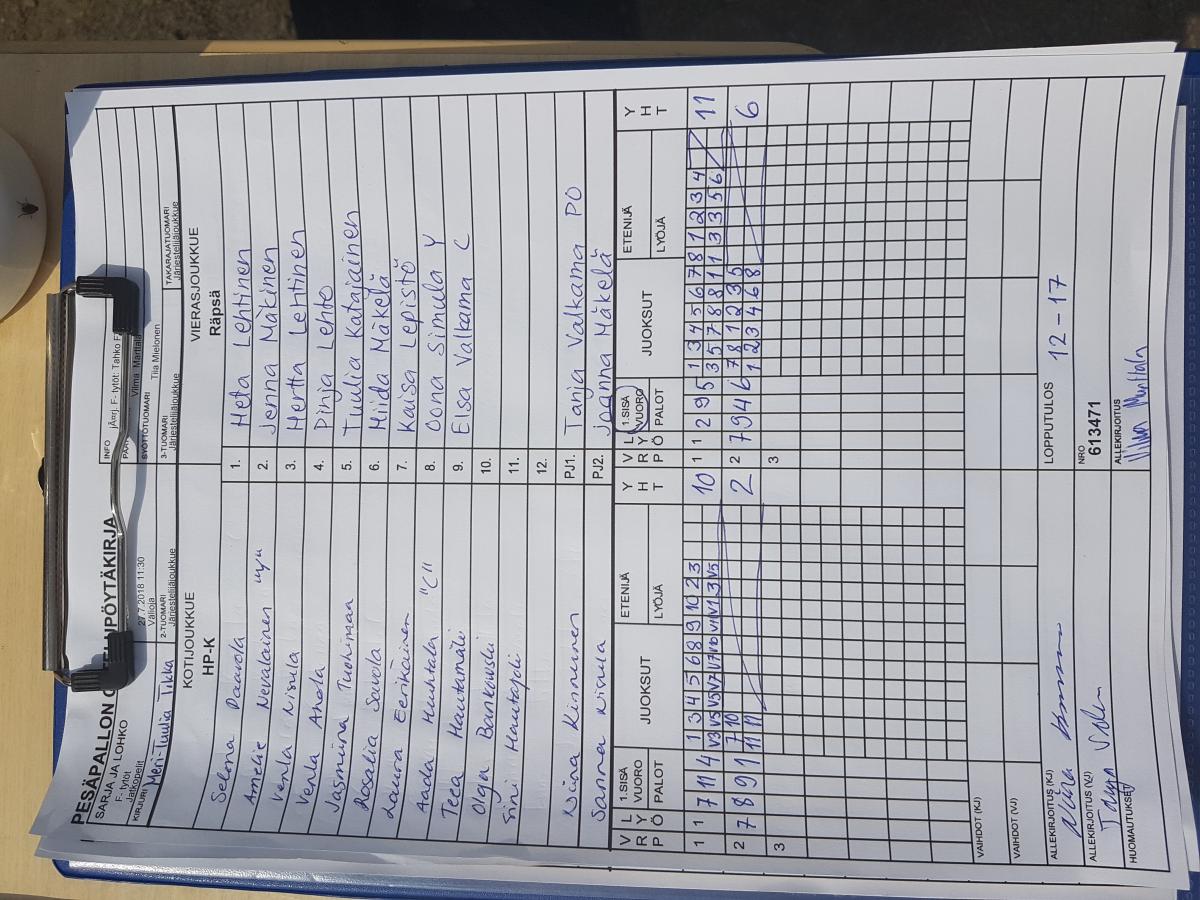 PESÄPALLON OTTELUPÖYTÄKIRJA
SARJA JA LOHKO
F- tytöt
Jatkopelit
27.7.2018 11:30
Välioja
INFO
F- tytöt: Tahko F
KIRJURI
Meri-Tuulia Tikka
2-TUOMARI
Järjestelijäjoukkue
SYÖTTÖTUOMARI
Tiia Mielonen
3-TUOMARI
Järjestelijäjoukkue
TAKARAJATUOMARI
Järjestelijäjoukkue
KOTIJOUKKUE
HP-K
VIERASJOUKKUE
Räpsä
Selena Paavola 1. Heta Lehtinen
Amelie Nevalainen "y" 2. Jenna Mäkinen
Venla Nisula 3. Hertta Lehtinen
Venla Ahola 4. Pinja Lehto
Jasmina Tuohimaa 5. Tuulia Katajainen
Rosalia Savola 6. Hiida Mäkelä
Laura Eerikäinen 7. Kaisa Lepistö
Aada Huhtala "C" 8. Oona Simula Y
Teea Hautamäki 9. Elsa Valkama C
Olga Bankowski 10.
Sini Hautajoki 11.
12.
Niina Kinnunen PJ1. Tanja Valkama PO
Sanna Nisula PJ2. Jaana Mäkelä
V R P L Y Ö 1.SISÄ VUORO PALOT JUOKSUT ETENIJÄ LYÖJÄ Y H T
V R P L Y Ö 1.SISÄ VUORO PALOT JUOKSUT ETENIJÄ LYÖJÄ Y H T
1 1 7 11 4 1 3 4 5 6 8 9 10 2 3 10
2 7 8 9 11 7 10 2
11 11
3
1 1 2 9 5 1 3 4 5 6 7 8 1 2 3 4 11
3 5 7 8 8 1 1 3 3 5 6
2 7 9 4 6 7 8 1 2 3 5 6
1 2 3 4 6 8
3
VAIHDOT (KJ)
VAIHDOT (VJ)
ALLEKIRJOITUS (KJ)
LOPPUTULOS 12 - 17
ALLEKIRJOITUS (VJ)
NRO
613471
HUOMAUTUKSET
ALLEKIRJOITUS